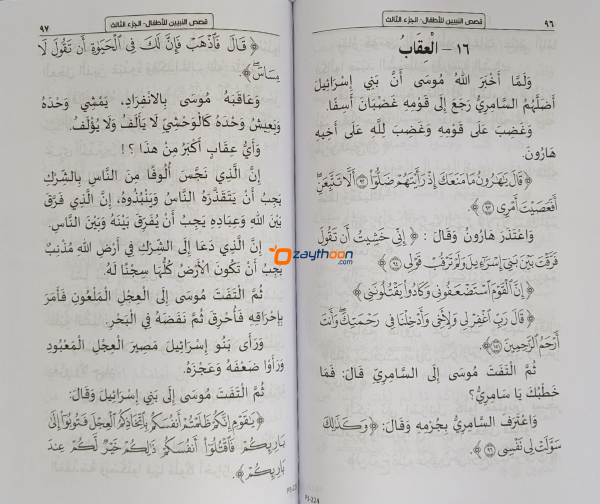 ٩٦
قصص النبيين للأطفال- الجزء الثالث
١٦ - الْعِقَابُ
وَلَمَّا أَخْبَرَ اللهُ مُوسَى أَنَّ بَنِي إِسْرَائِيلَ
أَضَلَّهُمُ السَّامِرِيُّ رَجَعَ إِلَى قَوْمِهِ غَضْبَانَ أَسِفًا.
وَغَضِبَ عَلَى قَوْمِهِ وَغَضِبَ لِلَّهِ عَلَى أَخِيهِ
هَارُونَ.
﴿قَالَ يَهَٰرُونُ مَا مَنَعَكَ إِذْ رَأَيْتَهُمْ ضَلُّوٓا۟ ﴿٩٢﴾ أَلَّا تَتَّبِعَنِ ۖ
أَفَعَصَيْتَ أَمْرِى ﴿٩٣﴾﴾.
وَاعْتَذَرَ هَارُونُ وَقَالَ : ﴿ إِنِّى خَشِيتُ أَن تَقُولَ
فَرَّقْتَ بَيْنَ بَنِىٓ إِسْرَٰٓءِيلَ وَلَمْ تَرْقُبْ قَوْلِى ﴿٩٤﴾﴾.
﴿إِنَّ ٱلْقَوْمَ ٱسْتَضْعَفُونِى وَكَادُوا۟ يَقْتُلُونَنِى﴾
﴿قَالَ رَبِّ ٱغْفِرْ لِى وَلِأَخِى وَأَدْخِلْنَا فِى رَحْمَتِكَ ۖ وَأَنتَ
أَرْحَمُ ٱلرَّٰحِمِينَ ﴿١٥١﴾﴾.
ثُمَّ الْتَفَتَ مُوسَى إِلَى السَّامِرِيِّ قَالَ: فَمَا
خَطْبُكَ يَا سَامِرِيُّ؟
وَاعْتَرَفَ السَّامِرِيُّ بِجُرْمِهِ وَقَالَ: ﴿وَكَذَٰلِكَ
سَوَّلَتْ لِى نَفْسِى ﴿٩٦﴾﴾.
P3-224
قصص النبيين للأطفال- الجزء الثالث
٩٧
﴿ قَالَ فَٱذْهَبْ فَإِنَّ لَكَ فِى ٱلْحَيَوٰةِ أَن تَقُولَ لَا
مِسَاسَ ۖ ﴾.
وَعَاقَبَهُ مُوسَى بِالانْفِرَادِ، يَمْشِي وَحْدَهُ
وَيَعِيشُ وَحْدَهُ كَالْوَحْشِيِّ لَا يَأْلَفُ وَلَا يُؤْلَفُ.
وَأَيُّ عِقَابٍ أَكْبَرُ مِنْ هَذَا ؟!
إِنَّ الَّذِي نَجَّسَ أُلُوفًا مِنَ النَّاسِ بِالشِّرْكِ
يَجِبُ أَنْ يَتَقَذَّرَهُ النَّاسُ وَيَنْبُذُوهُ، إِنَّ الَّذِي فَرَّقَ
بَيْنَ اللهِ وَعِبَادِهِ يَجِبُ أَنْ يُفَرَّقَ بَيْنَهُ وَبَيْنَ النَّاسِ.
إِنَّ الَّذِي دَعَا إِلَى الشِّرْكِ فِي أَرْضِ اللهِ مُذْنِبٌ
يَجِبُ أَنْ تَكُونَ الْأَرْضُ كُلُّهَا سِجْنًا لَهُ.
ثُمَّ الْتَفَتَ مُوسَى إِلَى الْعِجْلِ الْمَلْعُونِ فَأَمَرَ
بِإِحْرَاقِهِ فَأُحْرِقَ ثُمَّ نَفَضَهُ فِي الْبَحْرِ.
وَرَأَى بَنُو إِسْرَائِيلَ مَصِيرَ الْعِجْلِ الْمَعْبُودِ
وَرَأَوْا ضَعْفَهُ وَعَجْزَهُ.
ثُمَّ الْتَفَتَ مُوسَى إِلَى بَنِي إِسْرَائِيلَ وَقَالَ:
﴿يَٰقَوْمِ إِنَّكُمْ ظَلَمْتُمْ أَنفُسَكُم بِٱتِّخَاذِكُمُ ٱلْعِجْلَ فَتُوبُوٓا۟ إِلَىٰ
بَارِئِكُمْ فَٱقْتُلُوٓا۟ أَنفُسَكُمْ ذَٰلِكُمْ خَيْرٌ لَّكُمْ عِندَ
بَارِئِكُمْ ﴾.
zaythoon
.com